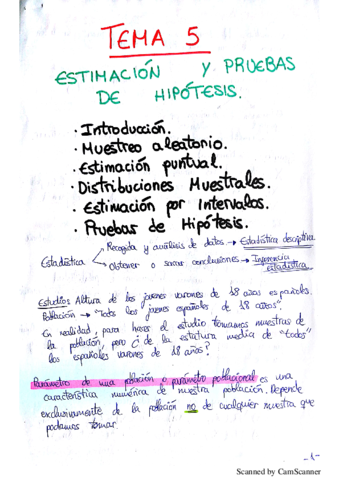 TEMA 5
ESTIMACIÓN Y PRUEBAS
DE HIPÓTESIS.
· Introducción.
· Muestreo aleatorio.
· Estimación puntual.
· Distribuciones Muestrales.
· Estimación por Intervalos.
· Pruebas de Hipótesis.
Estadística
Recogida y análisis de datos → Estadística descriptiva
Obtener o sacar conclusiones → Inferencia estadística
Estudios Altura de los jóvenes varones de 18 años españoles.
Población → "todos los jóvenes españoles de 18 años"
En realidad, para hacer el estudio tomamos muestras de
la población, pero ¿ de la estatura media de "todos"
los españoles varones de 18 años?
Parámetros de una población o parámetro poblacional es una
característica numérica de nuestra población. Depende
exclusivamente de la población no de cualquier muestra que
podamos tomar.
-1-
Scanned by CamScanner